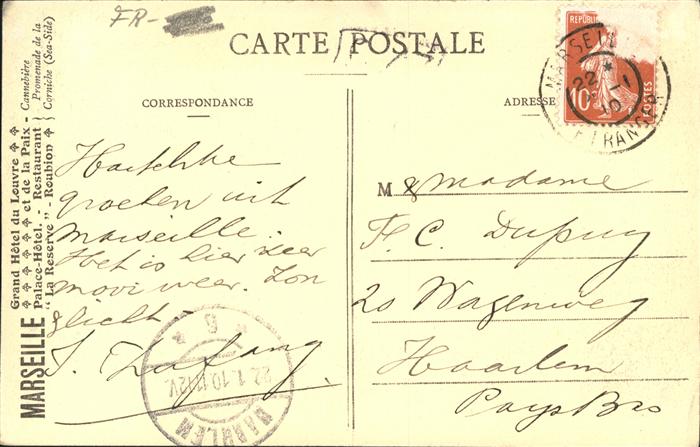 FR-
CARTE POSTALE
CORRESPONDANCE
ADRESSE
Hartelijke
groeten uit
Marseille.
Het is hier zeer
mooi weer. Zon
licht
M & madame
F. C. Dupuy
20 Wagenweg
Haarlem
Pays Bas
RÉPUBL
10
POSTES
MARSEIL
22
ETRANGER
HAARLEM
22.1.10.11-12V.
5
MARSEILLE
Grand Hôtel du Louvre
et de la Paix - Cannebière
Palace-Hôtel. - Restaurant
"La Reserve" - Roubion
Promenade de la
Corniche (Sea-Side)